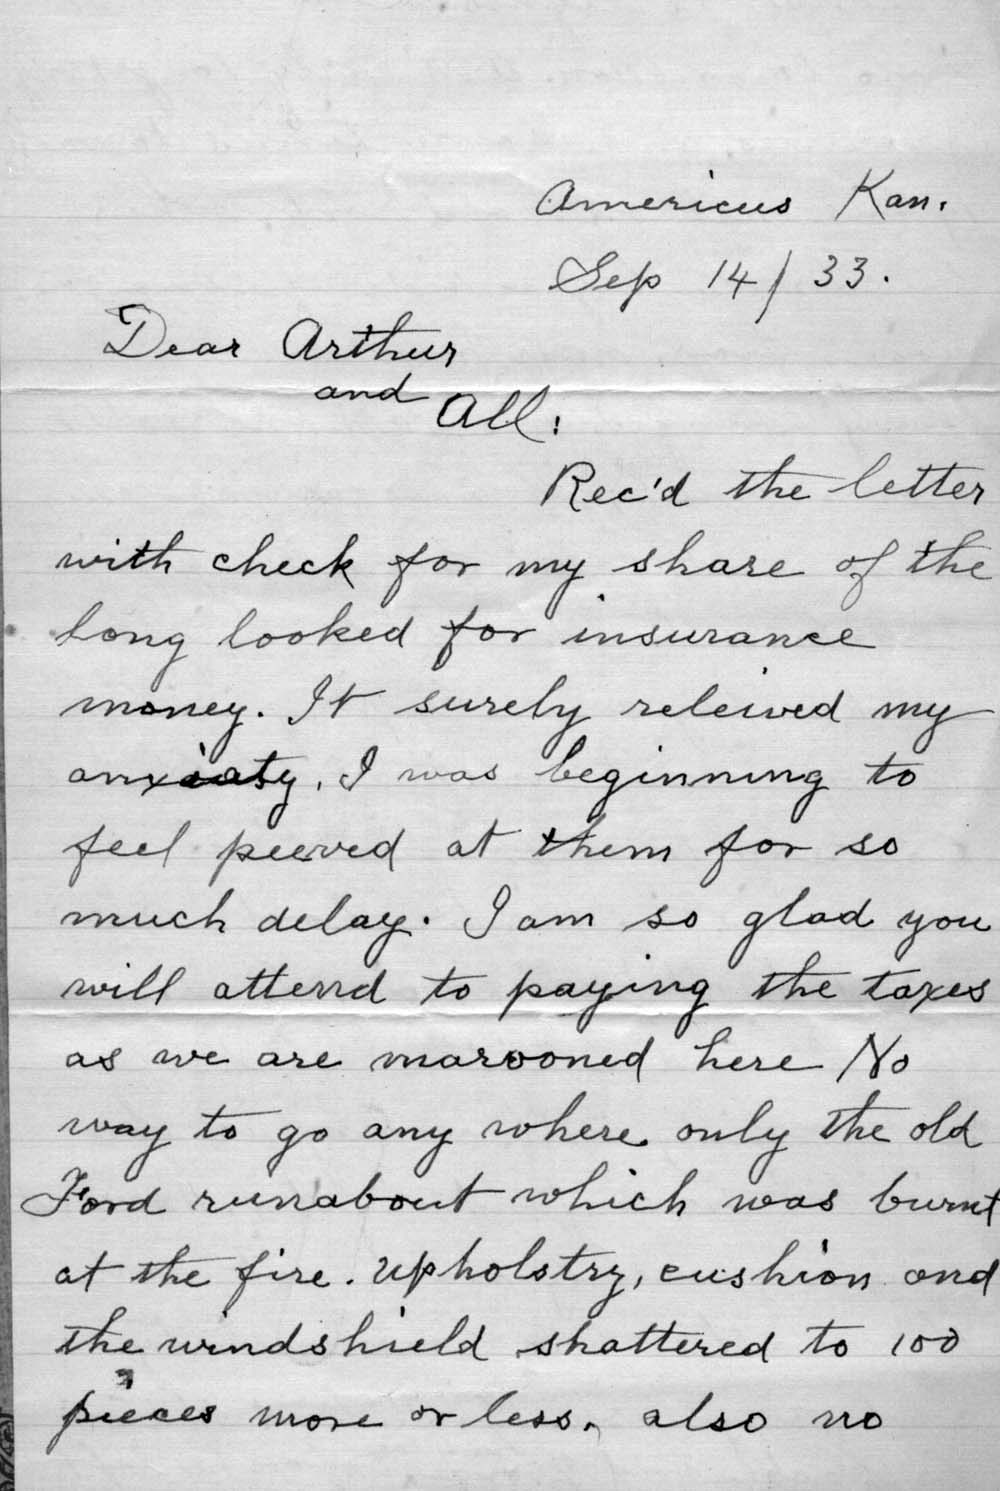 Americus Kan.
Sep 14/33.
Dear Arthur
and All:
Rec'd the letter
with check for my share of the
long looked for insurance
money. It surely releived my
anxiaty, I was beginning to
feel peeved at them for so
much delay. I am so glad you
will attend to paying the taxes
as we are marooned here No
way to go any where only the old
Ford runabout which was burnt
at the fire. Upholstry, cushion and
the windshield shattered to 100
pieces more or less, also no